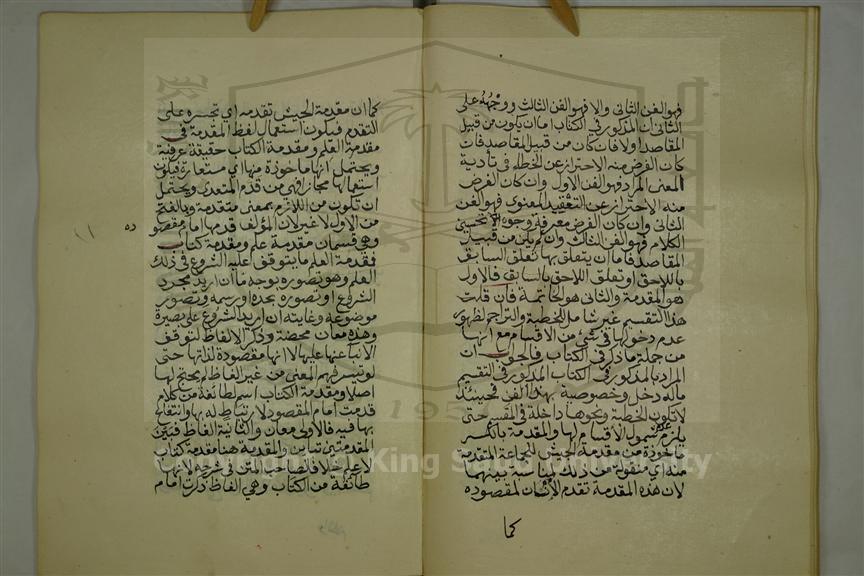 فهو الفن الثاني والا فهو الفن الثالث ووجهه على
الثاني ان المذكور في الكتاب اما ان يكون من قبيل
المقاصد اولا فان كان من قبيل المقاصد فان
كان الغرض منه الاحتراز عن الخطاء في تأدية
المعنى المراد فهو الفن الاول وان كان الغرض
منه الاحتراز عن التعقيد المعنوي فهو الفن
الثاني وان كان الغرض معرفة وجوه تحسين
الكلام فهو الفن الثالث وان لم يكن من قبيل
المقاصد فاما ان يتعلق بها تعلق السابق
باللاحق او تعلق اللاحق بالسابق فالاول
هو المقدمة والثاني هو الخاتمة فان قلت
هذا التقسيم غير شامل للخطبة والتراجم لظهور
عدم دخولها في شيء من الاقسام مع انها
من جملة ما ذكر في الكتاب فالجواب ان
المراد بالمذكور في الكتاب المذكور في التقسيم
ماله دخل وخصوصية بهذا الفن فحينئذ
لا تكون الخطبة ونحوها داخلة في المقسم حتى
يلزم عدم شمول الاقسام لها والمقدمة بالكسر
ماخوذة من مقدمة الجيش للجماعة المتقدمة
منه اي منقولة من ذلك لمناسبة بينهما
لان هذه المقدمة تقدم الانسان لمقصوده
كما
كما ان مقدمة الجيش تقدمه اي تجسره على
التقدم فيكون استعمال لفظ المقدمة في
مقدمة العلم ومقدمة الكتاب حقيقة عرفية
ويحتمل انها ماخوذة منها اي مستعارة فيكون
استعمالها مجازا فهي من قدم المتعدي ويحتمل
ان تكون من اللازم بمعنى متقدمة وبالفتح
من الاول لا غير لان المؤلف قدمها امام مقصوده
وهي قسمان مقدمة علم ومقدمة كتاب
فمقدمة العلم ما يتوقف عليه الشروع في ذلك
العلم وهو تصوره بوجه ما ان اريد مجرد
الشروع او تصوره بحده او رسمه وتصور
موضوعه وغايته ان اريد الشروع على بصيرة
وهذه معان محضة وذكر الالفاظ لتوقف
الانباء عنها عليها لا انها مقصودة لذاتها حتى
لو تيسر فهم المعنى من غير الفاظ لم يحتج لها
اصلا ومقدمة الكتاب اسم لطائفة من كلام
قدمت امام المقصود لارتباط له بها وانتفاع
بها فيه فالاولى معان والثانية الفاظ فبين
المقدمتين تباين والمقدمة هنا مقدمة كتاب
لا علم خلافا لصاحب المتن في شرحه لانها
طائفة من الكتاب وهي الفاظ ذكرت امام
1957
King Saud University